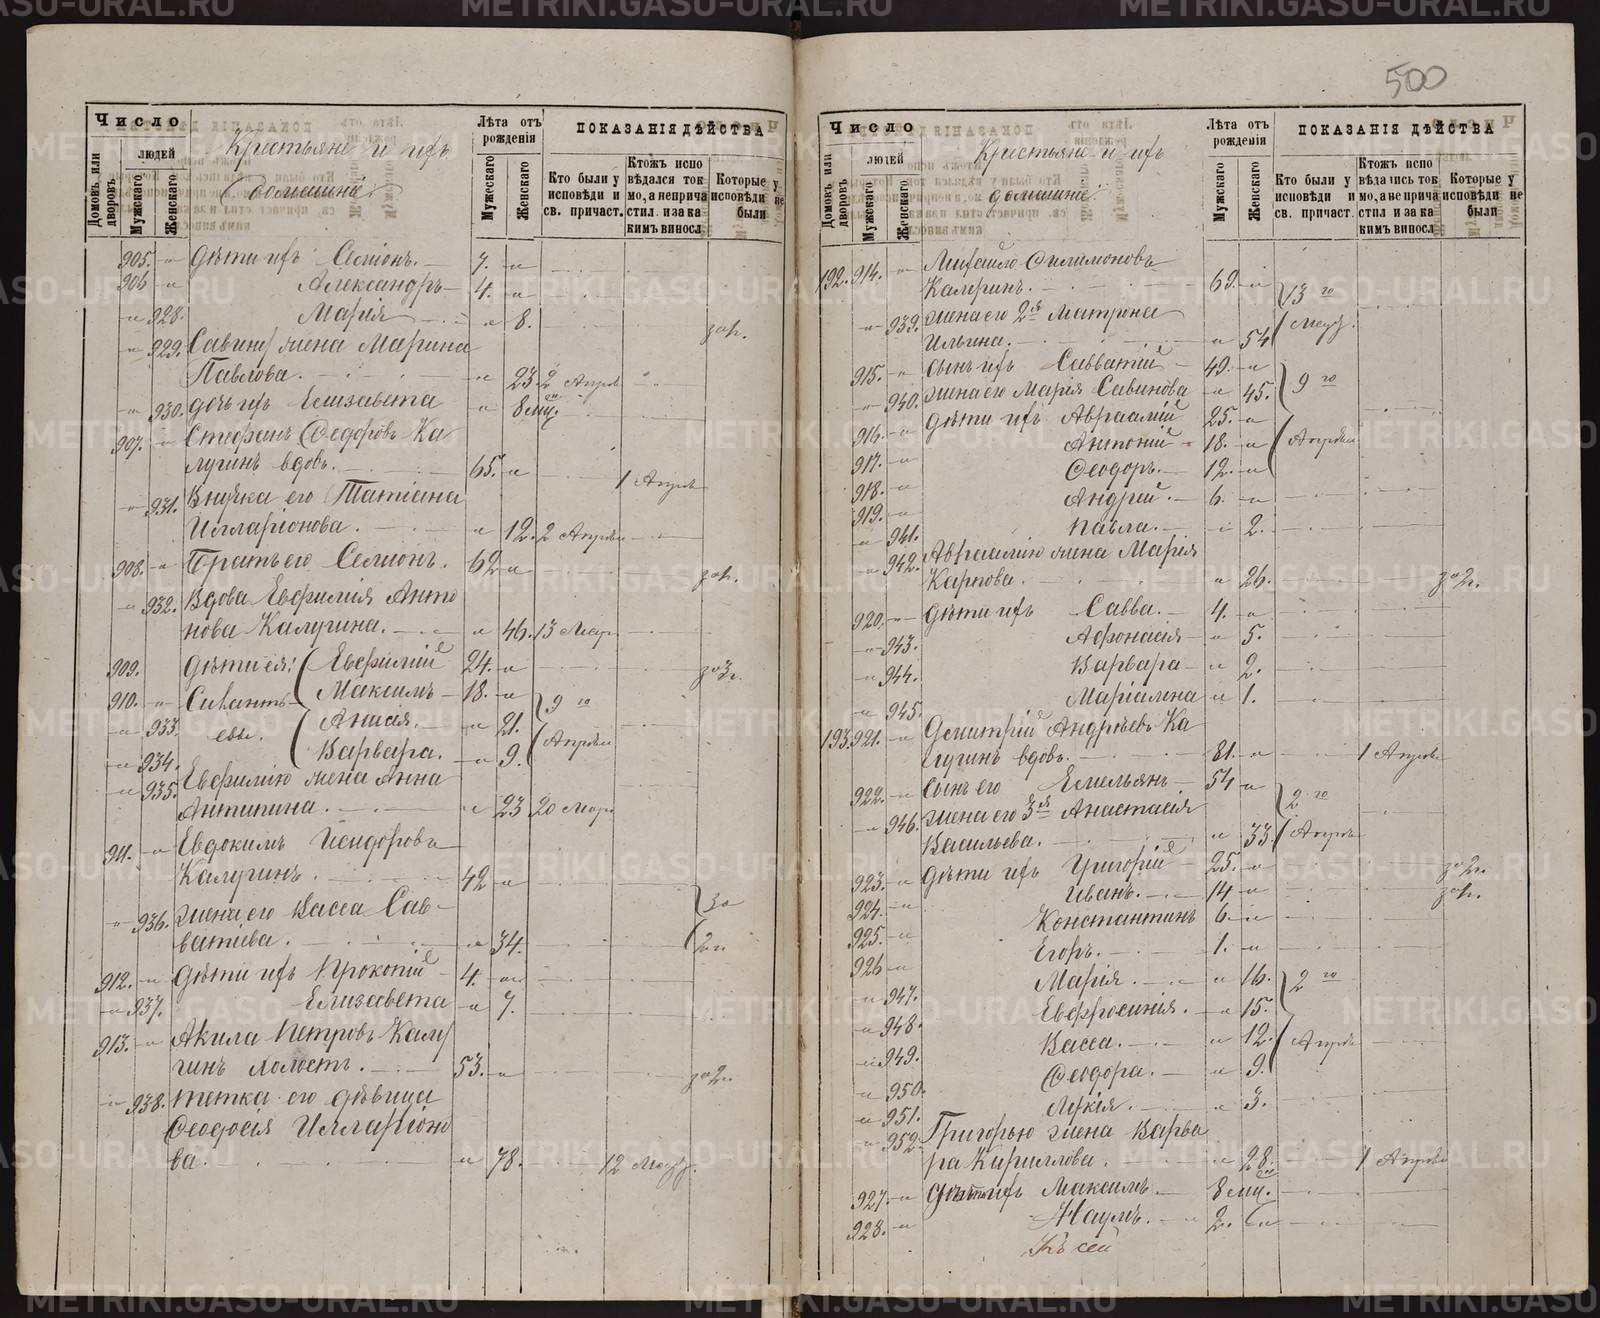 500
Число
Домовъ или дворовъ.
людей
Мужескаго
Женскаго
Крестьяне и ихъ
домашніе
Лѣта отъ рожденія
Мужескаго
Женскаго
ПОКАЗАНІЯ ДѢЙСТВА
Кто были у исповѣди и св. причаст.
Ктожъ испо вѣдался ток мо, а неприча стил. и за ка кимъ виносл
Которые у исповѣди не были
905. - " дѣти ихъ Семіонъ. 7. - "
906 - " Александръ 4. - "
" - 928. Марія " 8. за 1 г.
" - 929. Саввину жена Марина
Павлова. " 23. 2 Апрѣ
" - 930. дочь ихъ Елисавета " 8 мц.
907. - " Стефанъ Ѳедоровъ Ка
лугинъ вдовъ. 65. - " 1 Апрѣ
" - 931. Внучка его Татіана
Илларіонова. " 12. 2 Апрѣл
908. - " Братъ его Семіонъ. 62 - " за 1 г.
" - 932. Вдова Евфимія Анто
нова Калугина. " 46. 13 Мар
909. Дѣти ея: Евфимій 24. - " за 3 г.
910. - " Силантъ Максимъ 18. - " 9 го
" - 933. евы. Анисія. " 21. Апрѣл
" - 934. Варвара. " 9.
" - 935. Евфимію жена Анна
Антипина. " 23 20 Мар
911. - " Евдокимъ Исидоровъ
Калугинъ. 42 - "
" - 936. жена его Васса Сав- за
ватіева. " 34. 2 г.
912. - " дѣти ихъ Прокопій 4. - "
" - 937. Елизавета " 7.
913. - " Акила Петровъ Калу
гинъ холостъ. 53. - " за 2 г.
" - 938. тетка его дѣвица
Ѳеодосія Илларіоно
ва. " 78. 12 Мар.
Число
Домовъ или дворовъ
людей
Мужескаго
Женскаго
Крестьяне и ихъ
домашніе
Лѣта отъ рожденія
Мужескаго
Женскаго
ПОКАЗАНІЯ ДѢЙСТВА
Кто были у исповѣди и св. причаст
Ктожъ испо вѣдались ток мо, а не прича стил. и за ка кимъ виносл
Которые у исповѣди не были
192. 914. - " Михаило Филимоновъ
Калугинъ. 69. - " 13 го
" - 939. жена его 2я Матрона Мар.
Ильина. " 54
915. - " сынъ ихъ Савватій 49. - "
" - 940. жена его Марія Савинова " 45. 9 го
916. - " дѣти ихъ Авраамій 25. - "
917. - " Антоній 18. - " Апрѣл
918. - " Ѳеодоръ. 12. - "
919. - " Андрей. 6. - "
" - 941. Павла. " 2.
" - 942. Авраамію жена Марія
Карпова. " 26. за 2 г.
920. - " дѣти ихъ Савва. 4. - "
" - 943. Афонасія " 5.
" - 944. Варвара " 2.
" - 945. Маріамна " 1.
193. 921. - " Димитрій Андреевъ Ка
лугинъ вдовъ. 81. - " 1 Апрѣл
922. - " Сынъ его Емельянъ 54 - " 2 го
" - 946. жена его 3я Анастасія
Васильева. " 33. Апрѣл
923. - " дѣти ихъ Григорій 25. - " за 2 г.
924. - " Иванъ. 14. - " за 1 г.
925. - " Константинъ 6. - "
926 - " Егоръ. 1. - "
" - 947. Марія. " 16. 2 го
" - 948. Евфросинья. " 15.
" - 949. Васса. " 12. Апрѣл
" - 950. Ѳеодора. " 9.
" - 951. Лукія. " 3.
" - 952. Григорью жена Варва
ра Кириллова. " 28. 1 Апрѣл
927. - " Дѣти ихъ Максимъ. 8 мц.
928. - " Наумъ. 2. "
Къ сей
METRIKI.GASO-URAL.RU